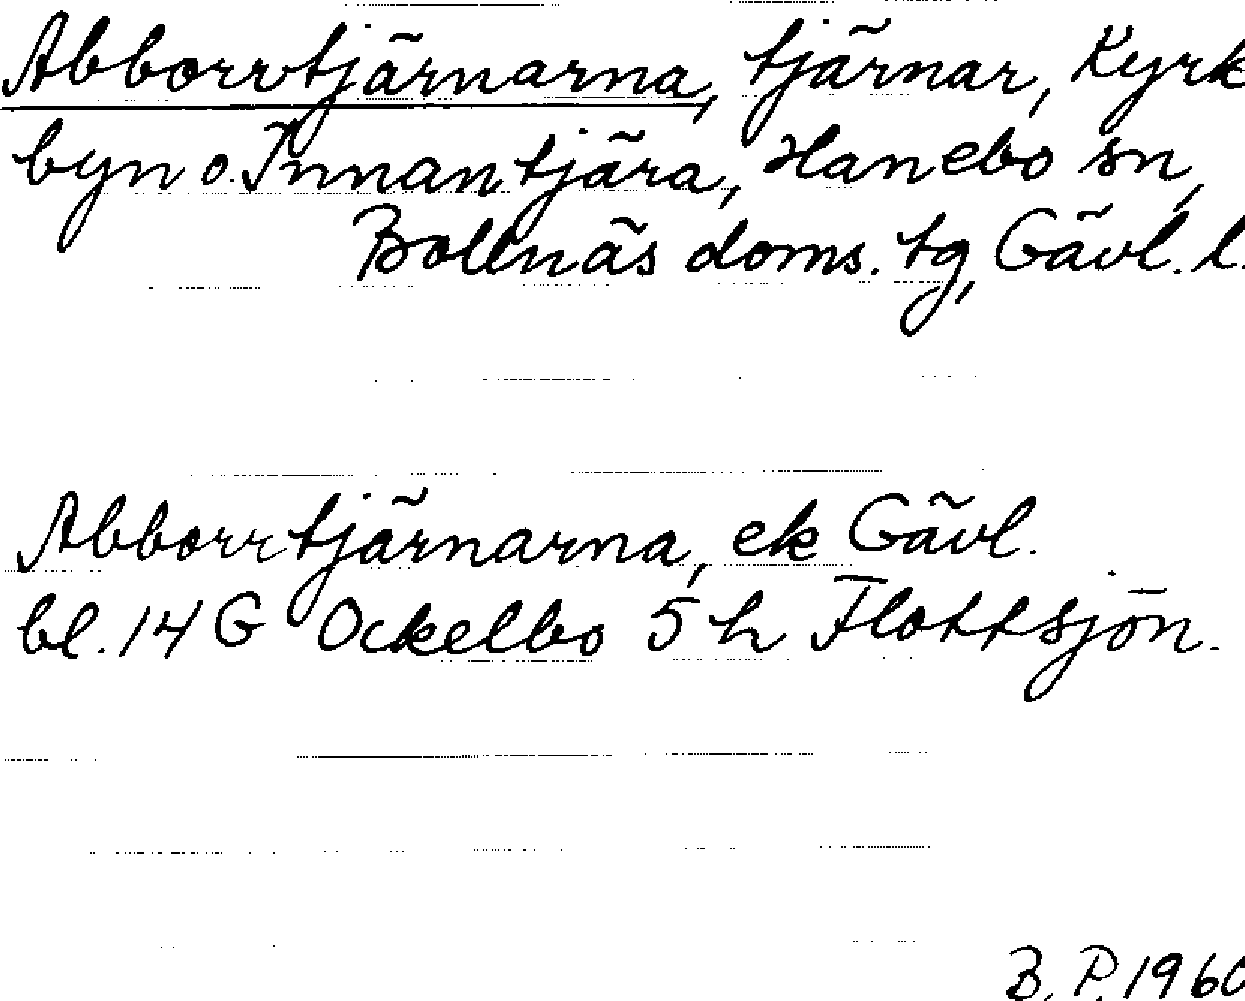 Abborrtjärnarna, tjärnar, Kyrk
byn o. Innantjära, Hanebo sn,
Bollnäs doms. tg, Gävl. l.
Abborrtjärnarna, ek Gävl.
bl. 14 G Ockelbo 5 h Flottsjön.
B. P. 1960